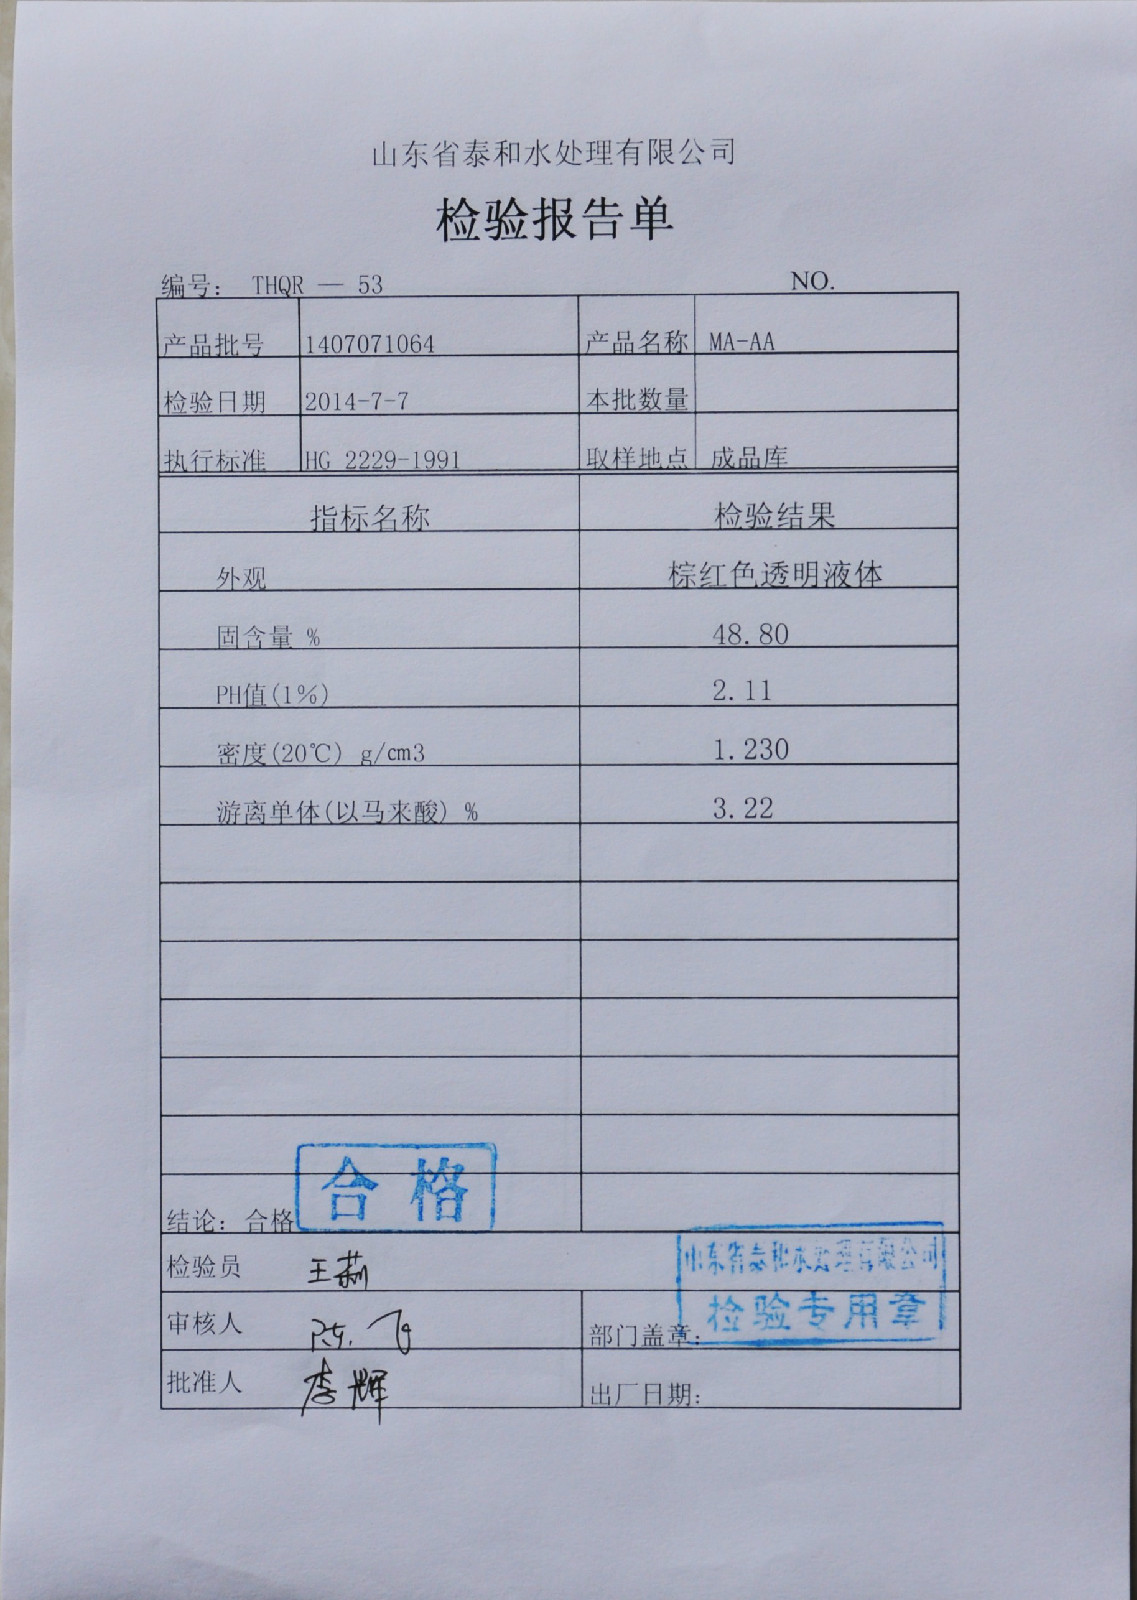 山东省泰和水处理有限公司
检验报告单
编号： THQR — 53 NO.
产品批号 1407071064 产品名称 MA-AA
检验日期 2014-7-7 本批数量
执行标准 HG 2229-1991 取样地点 成品库
指标名称 检验结果
外观 棕红色透明液体
固含量 % 48.80
PH值(1%) 2.11
密度(20℃) g/cm3 1.230
游离单体(以马来酸) % 3.22
合格
结论：合格
山东省泰和水处理有限公司
检验员 王
检验专用章
审核人 陈飞
部门盖章：
批准人 李辉
出厂日期：